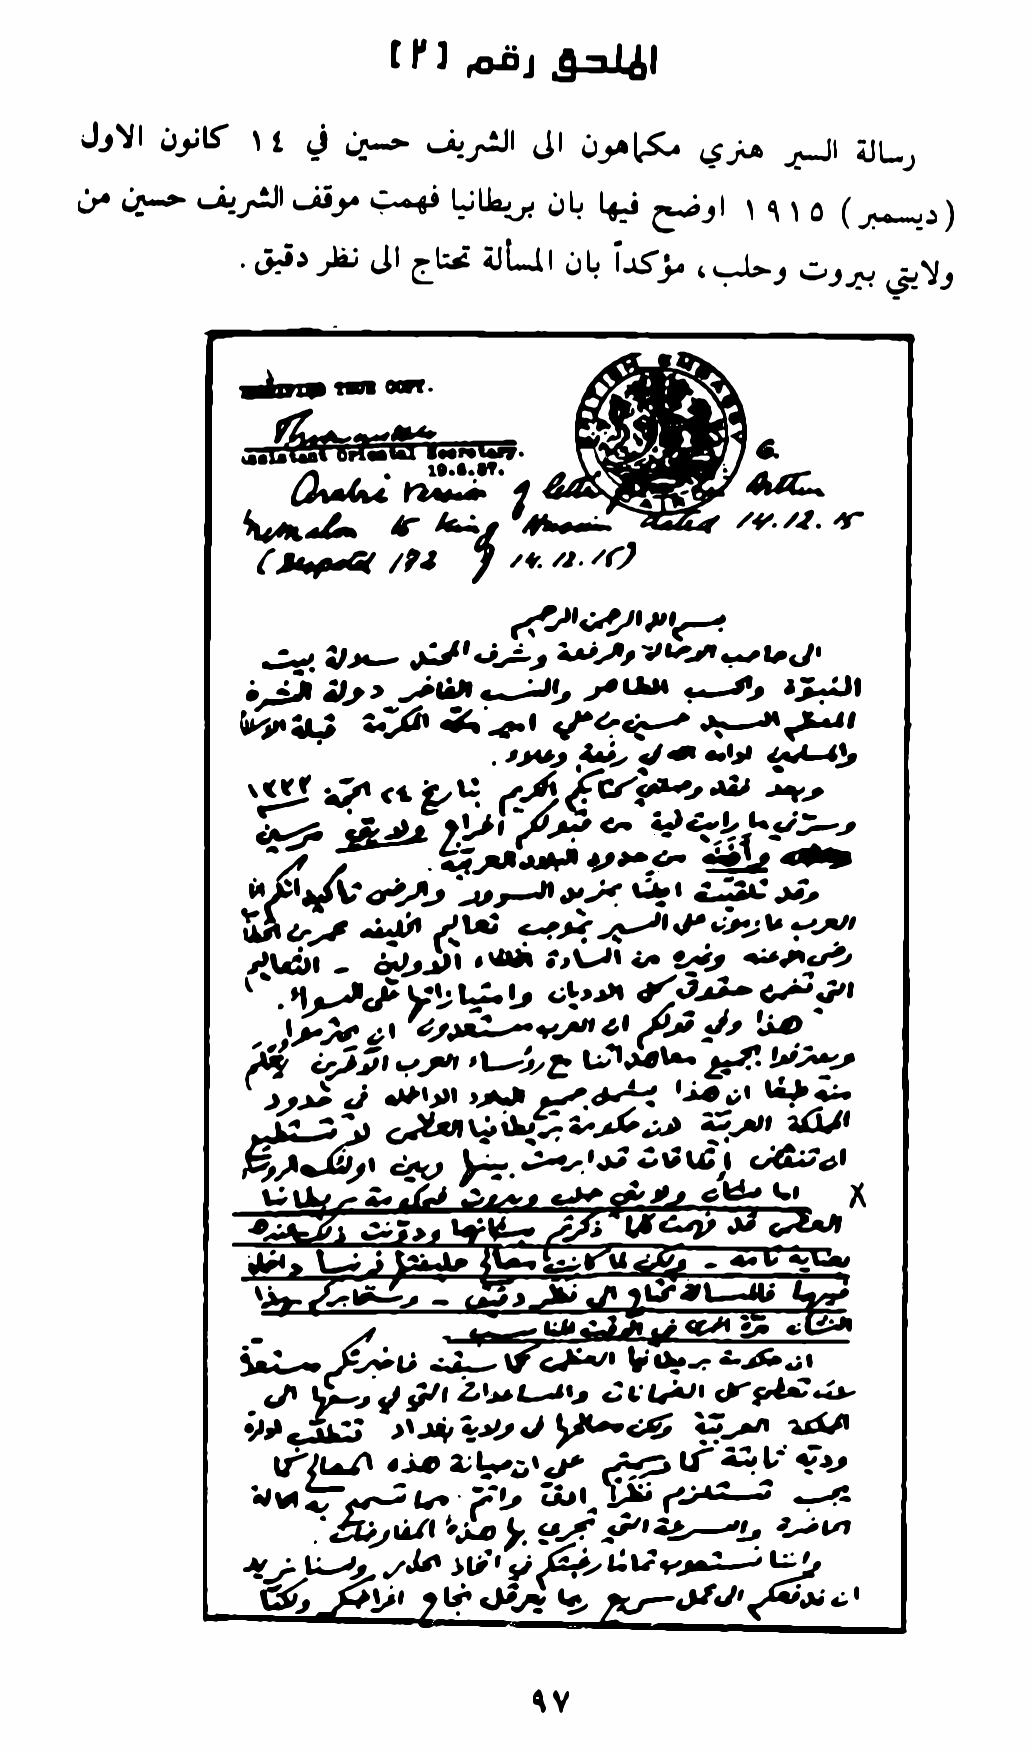 الملحق رقم [٢]
رسالة السير هنري مكماهون الى الشريف حسين في ١٤ كانون الاول
(ديسمبر) ١٩١٥ اوضح فيها بان بريطانيا فهمت موقف الشريف حسين من
ولايتي بيروت وحلب، مؤكداً بان المسألة تحتاج الى نظر دقيق.
CERTIFIED TRUE COPY.
BRITISH EMBASSY
Assistant Oriental Secretary.
19.6.37.
6.
Arabic Version of letter from Sir Arthur
McMahon to King Hussein dated 14.12.15
(Despatch 172 of 14.12.15)
بسم الله الرحمن الرحيم
الى صاحب الاصالة والرفعة وشرف المحتد سلالة بيت
النبوّة والحسب الطاهر والنسب الفاخر دولة الشريف
المعظم السيد حسين بن علي امير مكة المكرّمة قبلة الاسلام
والمسلمين ادامه الله في رفعة وعلاء.
وبعد فقد وصلني كتابكم الكريم بتاريخ ٢٤ الحجة ١٣٣٣
وسرّني ما رايت فيه من قبولكم اخراج ولايتي مرسين
وأضنه من حدود البلاد العربيّة.
وقد تلقيت ايضًا بمزيد السرور والرضى تأكيداتكم ان
العرب عازمون على السير بموجب تعاليم الخليفه عمر بن الخطاب
رضي الله عنه وغيره من السادة الخلفاء الاولين - التعاليم
التي تضمن حقوق كل الاديان وامتيازاتها على السواء.
هذا وفي قولكم ان العرب مستعدون ان يحترموا
ويعترفوا بجميع معاهداتنا مع رؤساء العرب الآخرين يعلم
منه طبعًا ان هذا يشمل جميع البلاد الداخله في حدود
المملكة العربيّة لان حكومة بريطانيا العظمى لا تستطيع
ان تنقض اتفاقات قد ابرمت بينها وبين اولئك الرؤساء
اما بشأن ولايتي حلب وبيروت فحكومة بريطانيا X
العظمى قد فهمت كلما ذكرتم بشأنهما ودوّنت ذلك عندها
بعناية تامة - ولكن لما كانت مصالح حليفتها فرنسا داخلة
فيهما فالمسألة تحتاج الى نظر دقيق - وسنخابركم بهذا
الشأن مرّة اخرى في الوقت المناسب.
ان حكومة بريطانيا العظمى كما سبقت فاخبرتكم مستعدّة
لان تعطي كل الضمانات والمساعدات التي في وسعها الى
المملكة العربيّة ولكن مصالحها في ولاية بغداد تتطلّب ادارة
وديّة ثابتة كما رسمتم على ان صيانة هذه المصالح كما
يجب تستلزم نظرًا ادقّ واتمّ مما تسمح به الحالة
الحاضرة والسرعة التي تجري بها هذه المفاوضات.
واننا نستصوب تمامًا رغبتكم في اتخاذ الحذر ولسنا نريد
ان ندفعكم الى عمل سريع ربما يعرقل نجاح اغراضكم ولكنّا
٩٧